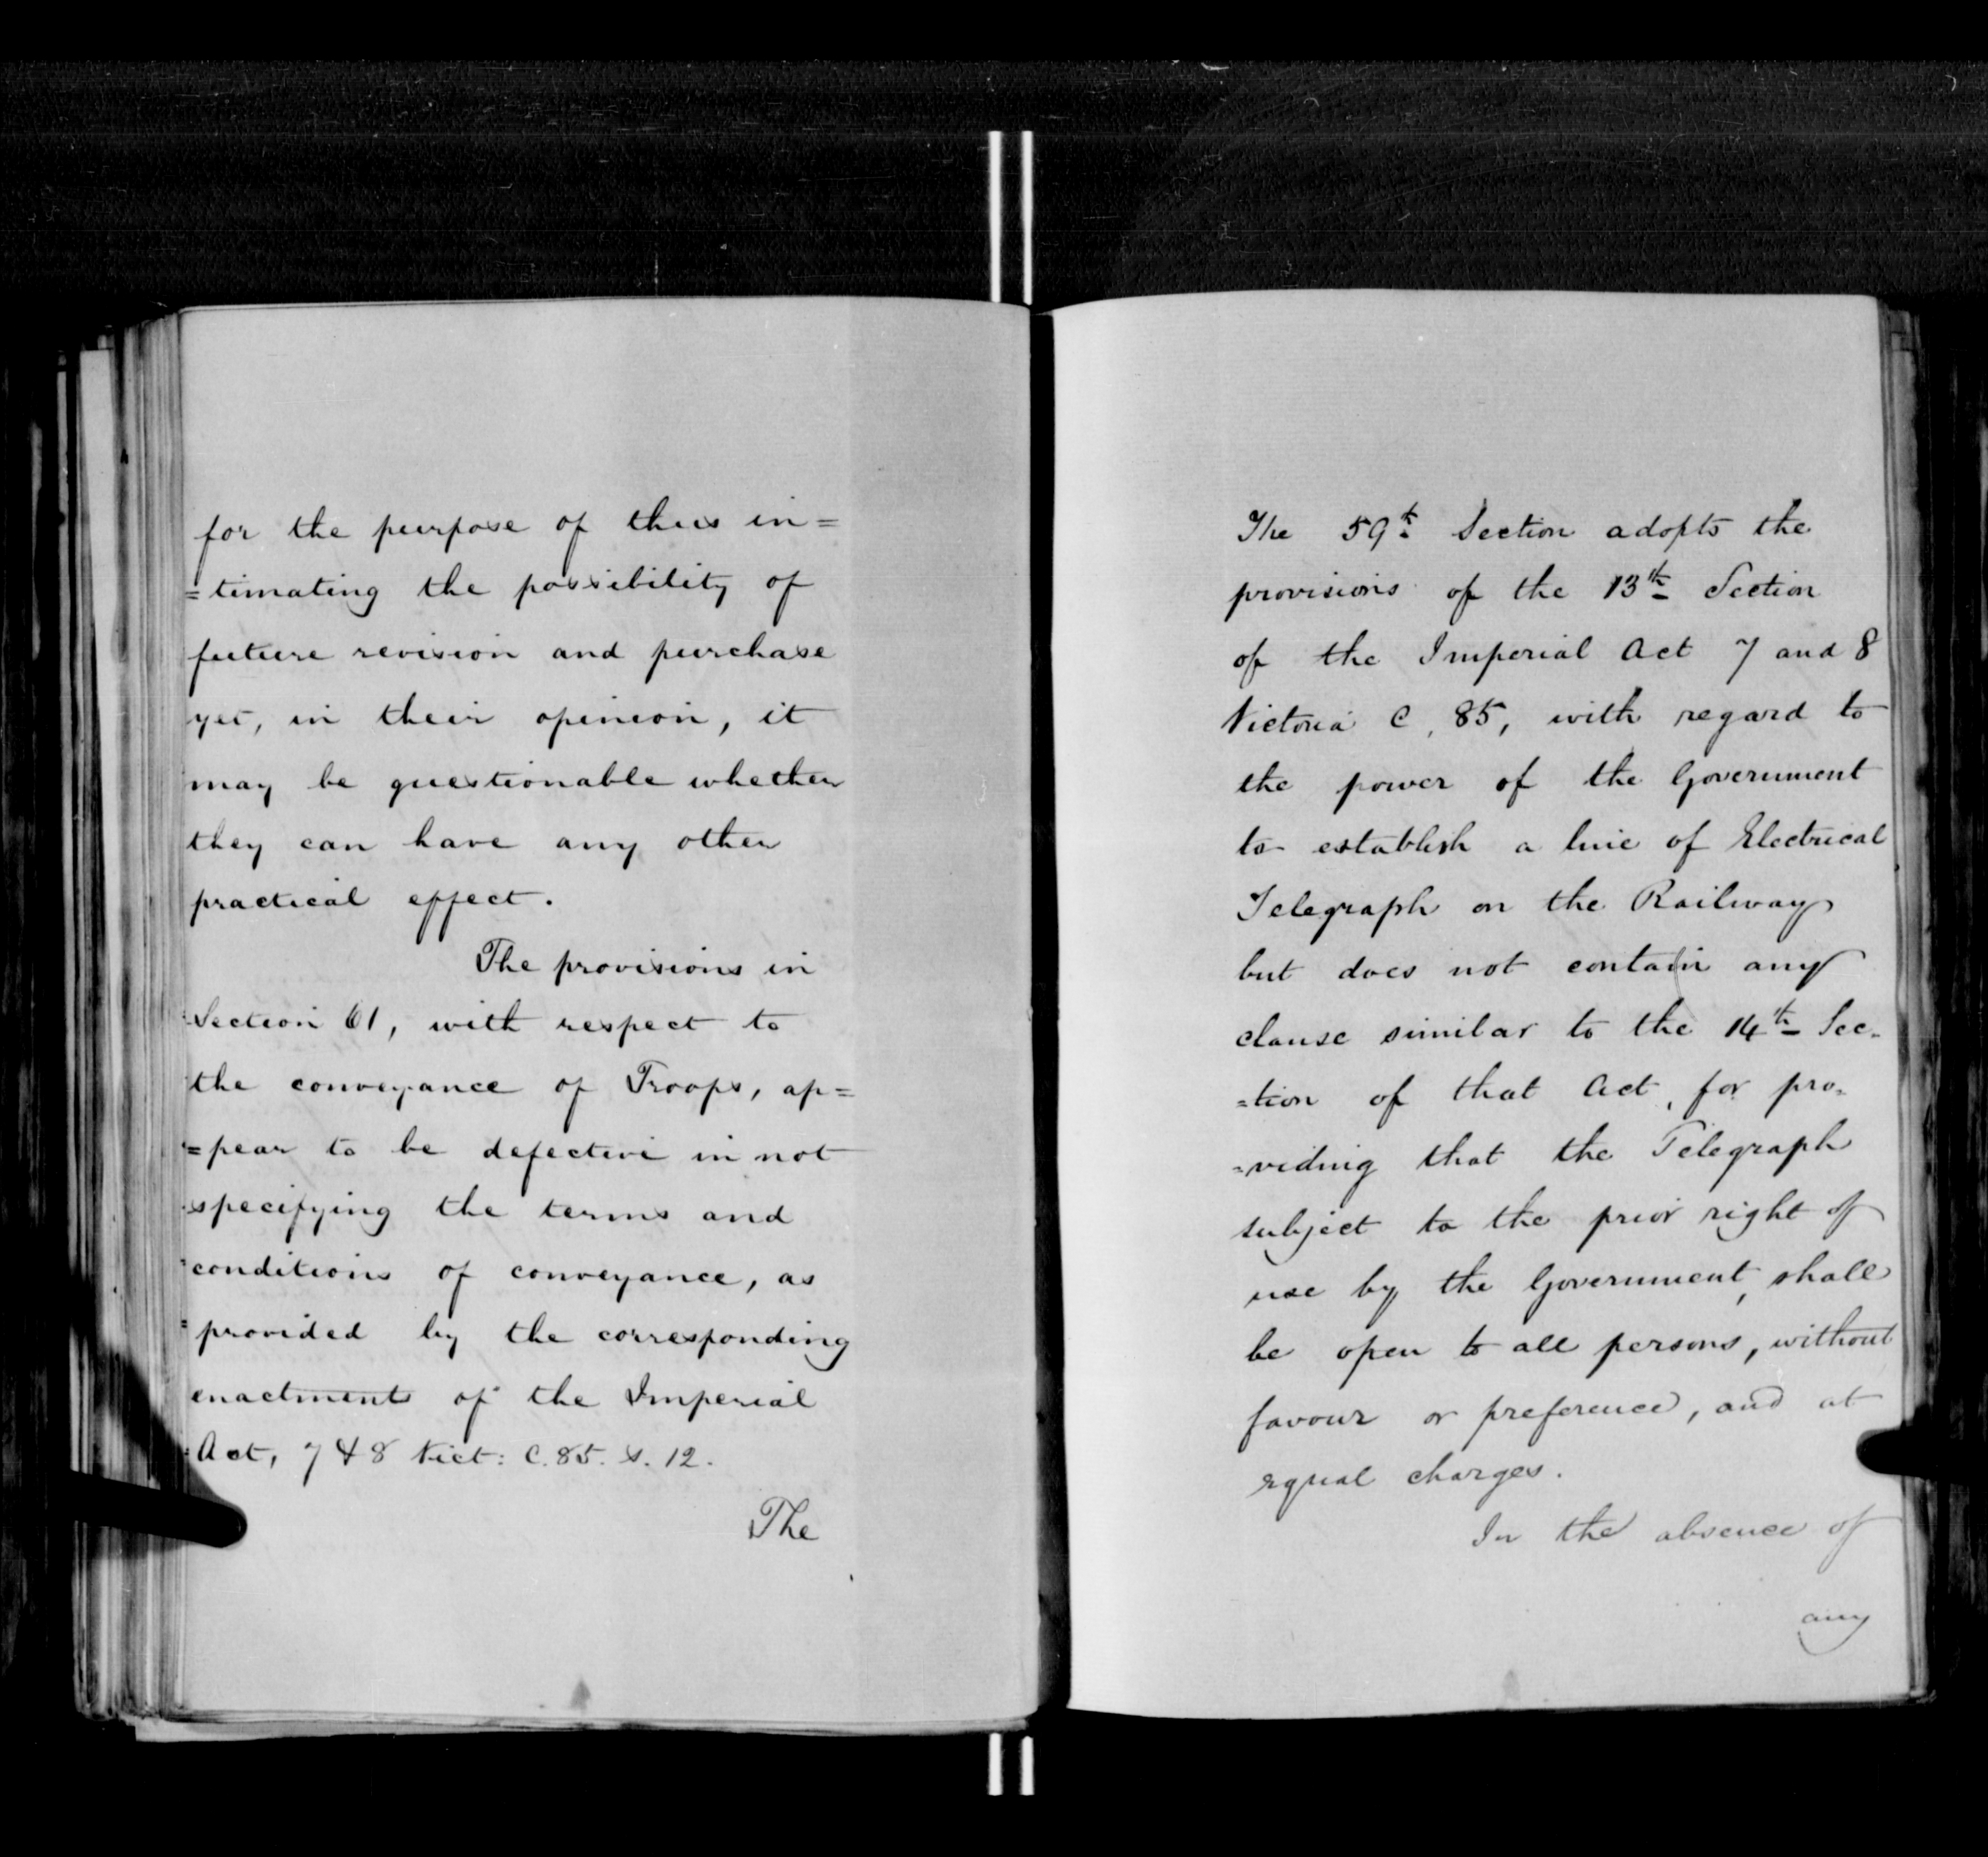 for the purpose of thus in=
=timating the possibility of
future revision and purchase
yet, in their opinion, it
may be questionable whether
they can have any other
practical effect.
The provisions in
Section 61, with respect to
the conveyance of Troops, ap=
=pear to be defective in not
specifying the terms and
conditions of conveyance, as
provided by the corresponding
enactments of the Imperial
Act, 7 & 8 Vict: C. 85. S. 12.
The
The 59th Section adopts the
provisions of the 13th Section
of the Imperial Act 7 and 8
Victoria C. 85, with regard to
the power of the Government
to establish a line of Electrical
Telegraph on the Railway
but does not contain any
clause similar to the 14th Sec-
=tion of that Act, for pro-
=viding that the Telegraph
subject to the prior right of
use by the Government, shall
be open to all persons, without
favour or preference, and at
equal charges.
In the absence of
any